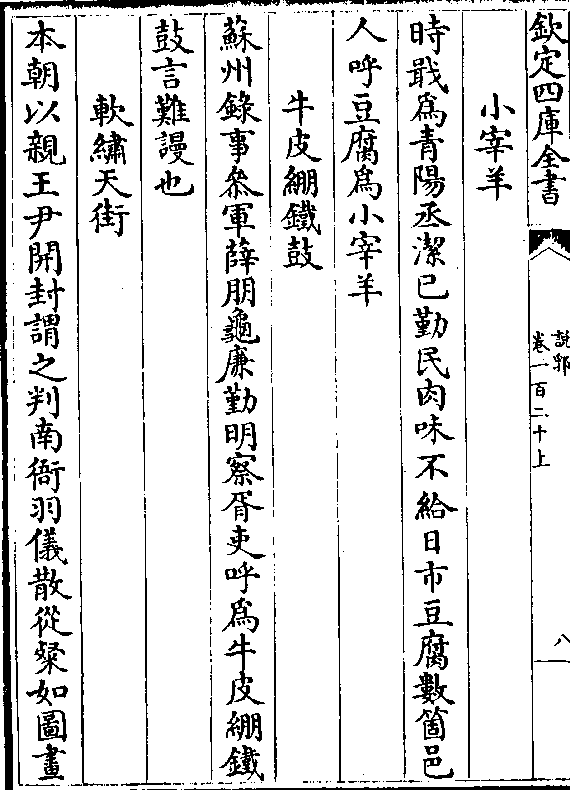 欽定四庫全書
說郛
卷一百二十上
八
小宰羊
時戢爲青陽丞潔已勤民肉味不給日市豆腐數箇邑
人呼豆腐爲小宰羊
牛皮綳鐵鼓
蘇州錄事叅軍薛朋龜廉勤明察胥吏呼爲牛皮綳鐵
鼓言難謾也
軟繡天街
本朝以親王尹開封謂之判南衙羽儀散從粲如圖畫